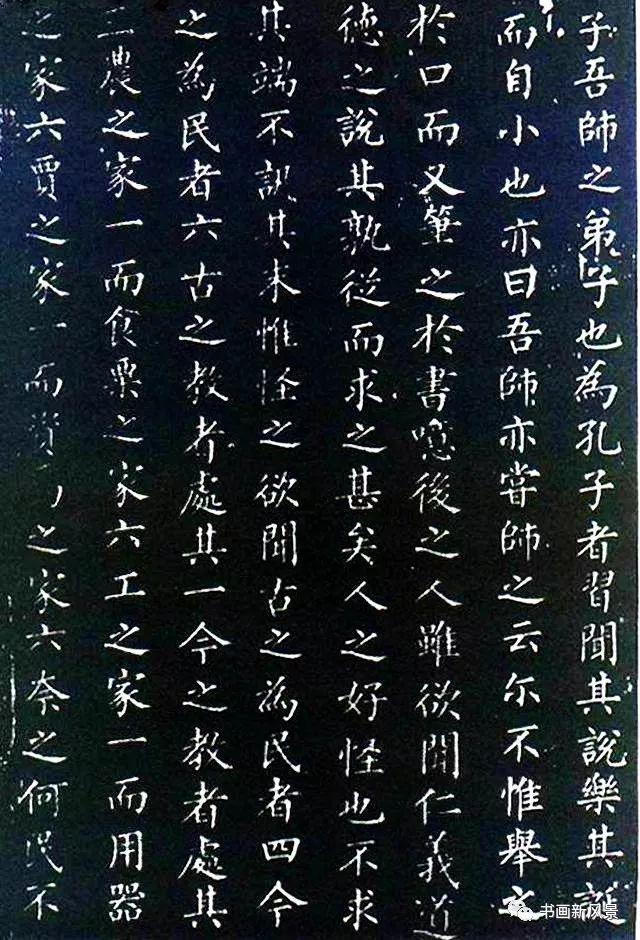 子吾師之弟子也為孔子者習聞其說樂其誕
而自小也亦曰吾師亦嘗師之云尓不惟舉之
於口而又筆之於書噫後之人雖欲聞仁義道
德之說其孰從而求之甚矣人之好怪也不求
其端不訊其末惟怪之欲聞古之為民者四今
之為民者六古之教者處其一今之教者處其
三農之家一而食粟之家六工之家一而用器
之家六賈之家一而資之家六奈之何民不
书画新风景